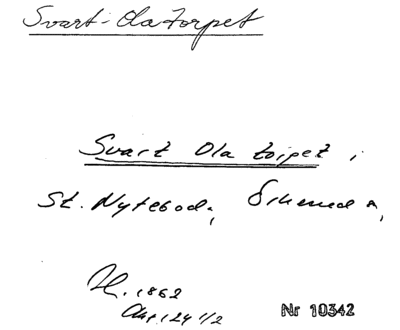 Svart-Ola torpet
Svart Ola torpet i
St. Nyteboda, Örkened s,
H. 1862
124 1/2
Nr 10342